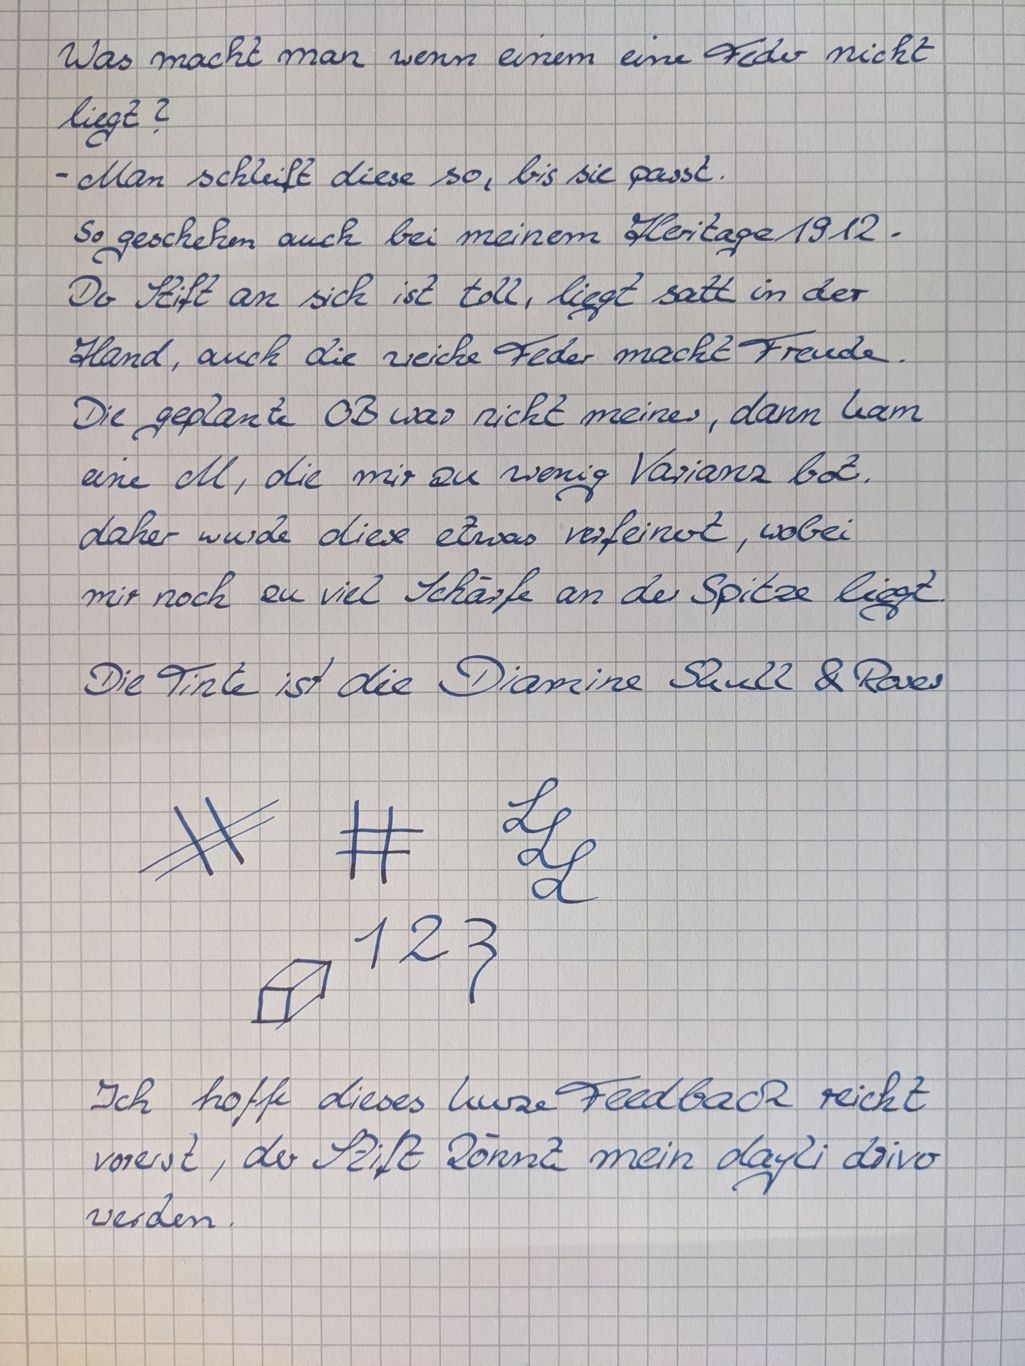 Was macht man wenn einem eine Feder nicht
liegt?
- Man schleift diese so, bis sie passt.
So geschehen auch bei meinem Heritage 1912.
Der Stift an sich ist toll, liegt satt in der
Hand, auch die weiche Feder macht Freude.
Die geplante OB war nicht meines, dann kam
eine M, die mir zu wenig Varianz bot.
daher wurde diese etwas verfeinert, wobei
mir noch zu viel Schärfe an der Spitze liegt.
Die Tinte ist die Diamine Skull & Roses
# #
1 2 3
Ich hoffe dieses kurze Feedback reicht
vorerst, der Stift könnt mein dayli driver
werden.